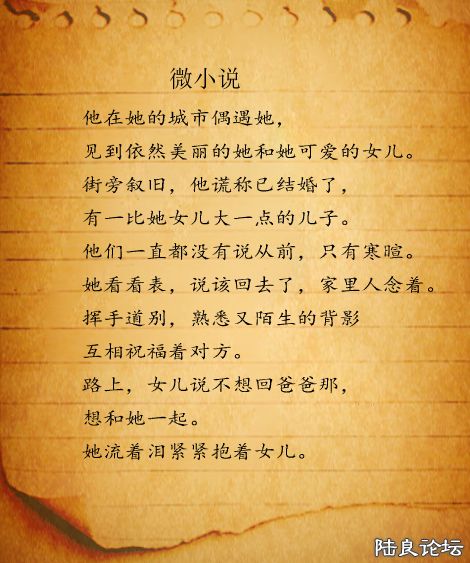 微小说
他在她的城市偶遇她，
见到依然美丽的她和她可爱的女儿。
街旁叙旧，他谎称已结婚了，
有一比她女儿大一点的儿子。
他们一直都没有说从前，只有寒暄。
她看看表，说该回去了，家里人念着。
挥手道别，熟悉又陌生的背影
互相祝福着对方。
路上，女儿说不想回爸爸那，
想和她一起。
她流着泪紧紧抱着女儿。
陆良论坛